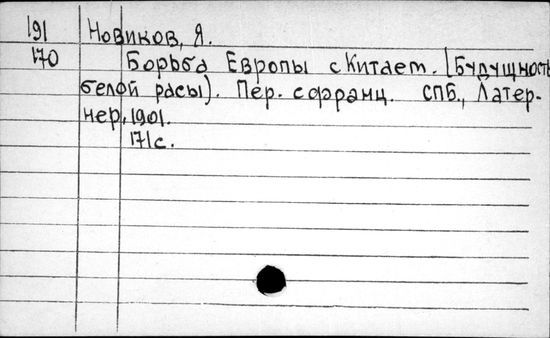 191 Новиков, Я.
170 Борьба Европы с Китаем. (Будущность
белой расы). Пер. с франц. СПБ., Латер-
нер, 1901.
171 с.